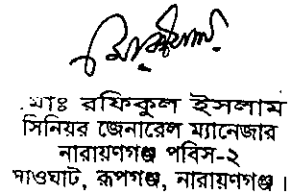 মোঃ রফিকুল ইসলাম
সিনিয়র জেনারেল ম্যানেজার
নারায়ণগঞ্জ পবিস-২
পাওঘাট, রূপগঞ্জ, নারায়ণগঞ্জ।